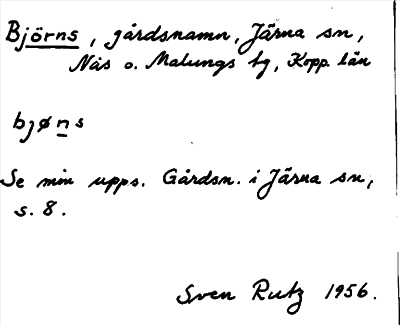 Björns, gårdsnamn, Järna sn,
Nås o. Malungs tg, Kopp. län
bjøns
Se min upps. Gårdsn. i Järna sn,
s. 8.
Sven Rutz 1956.